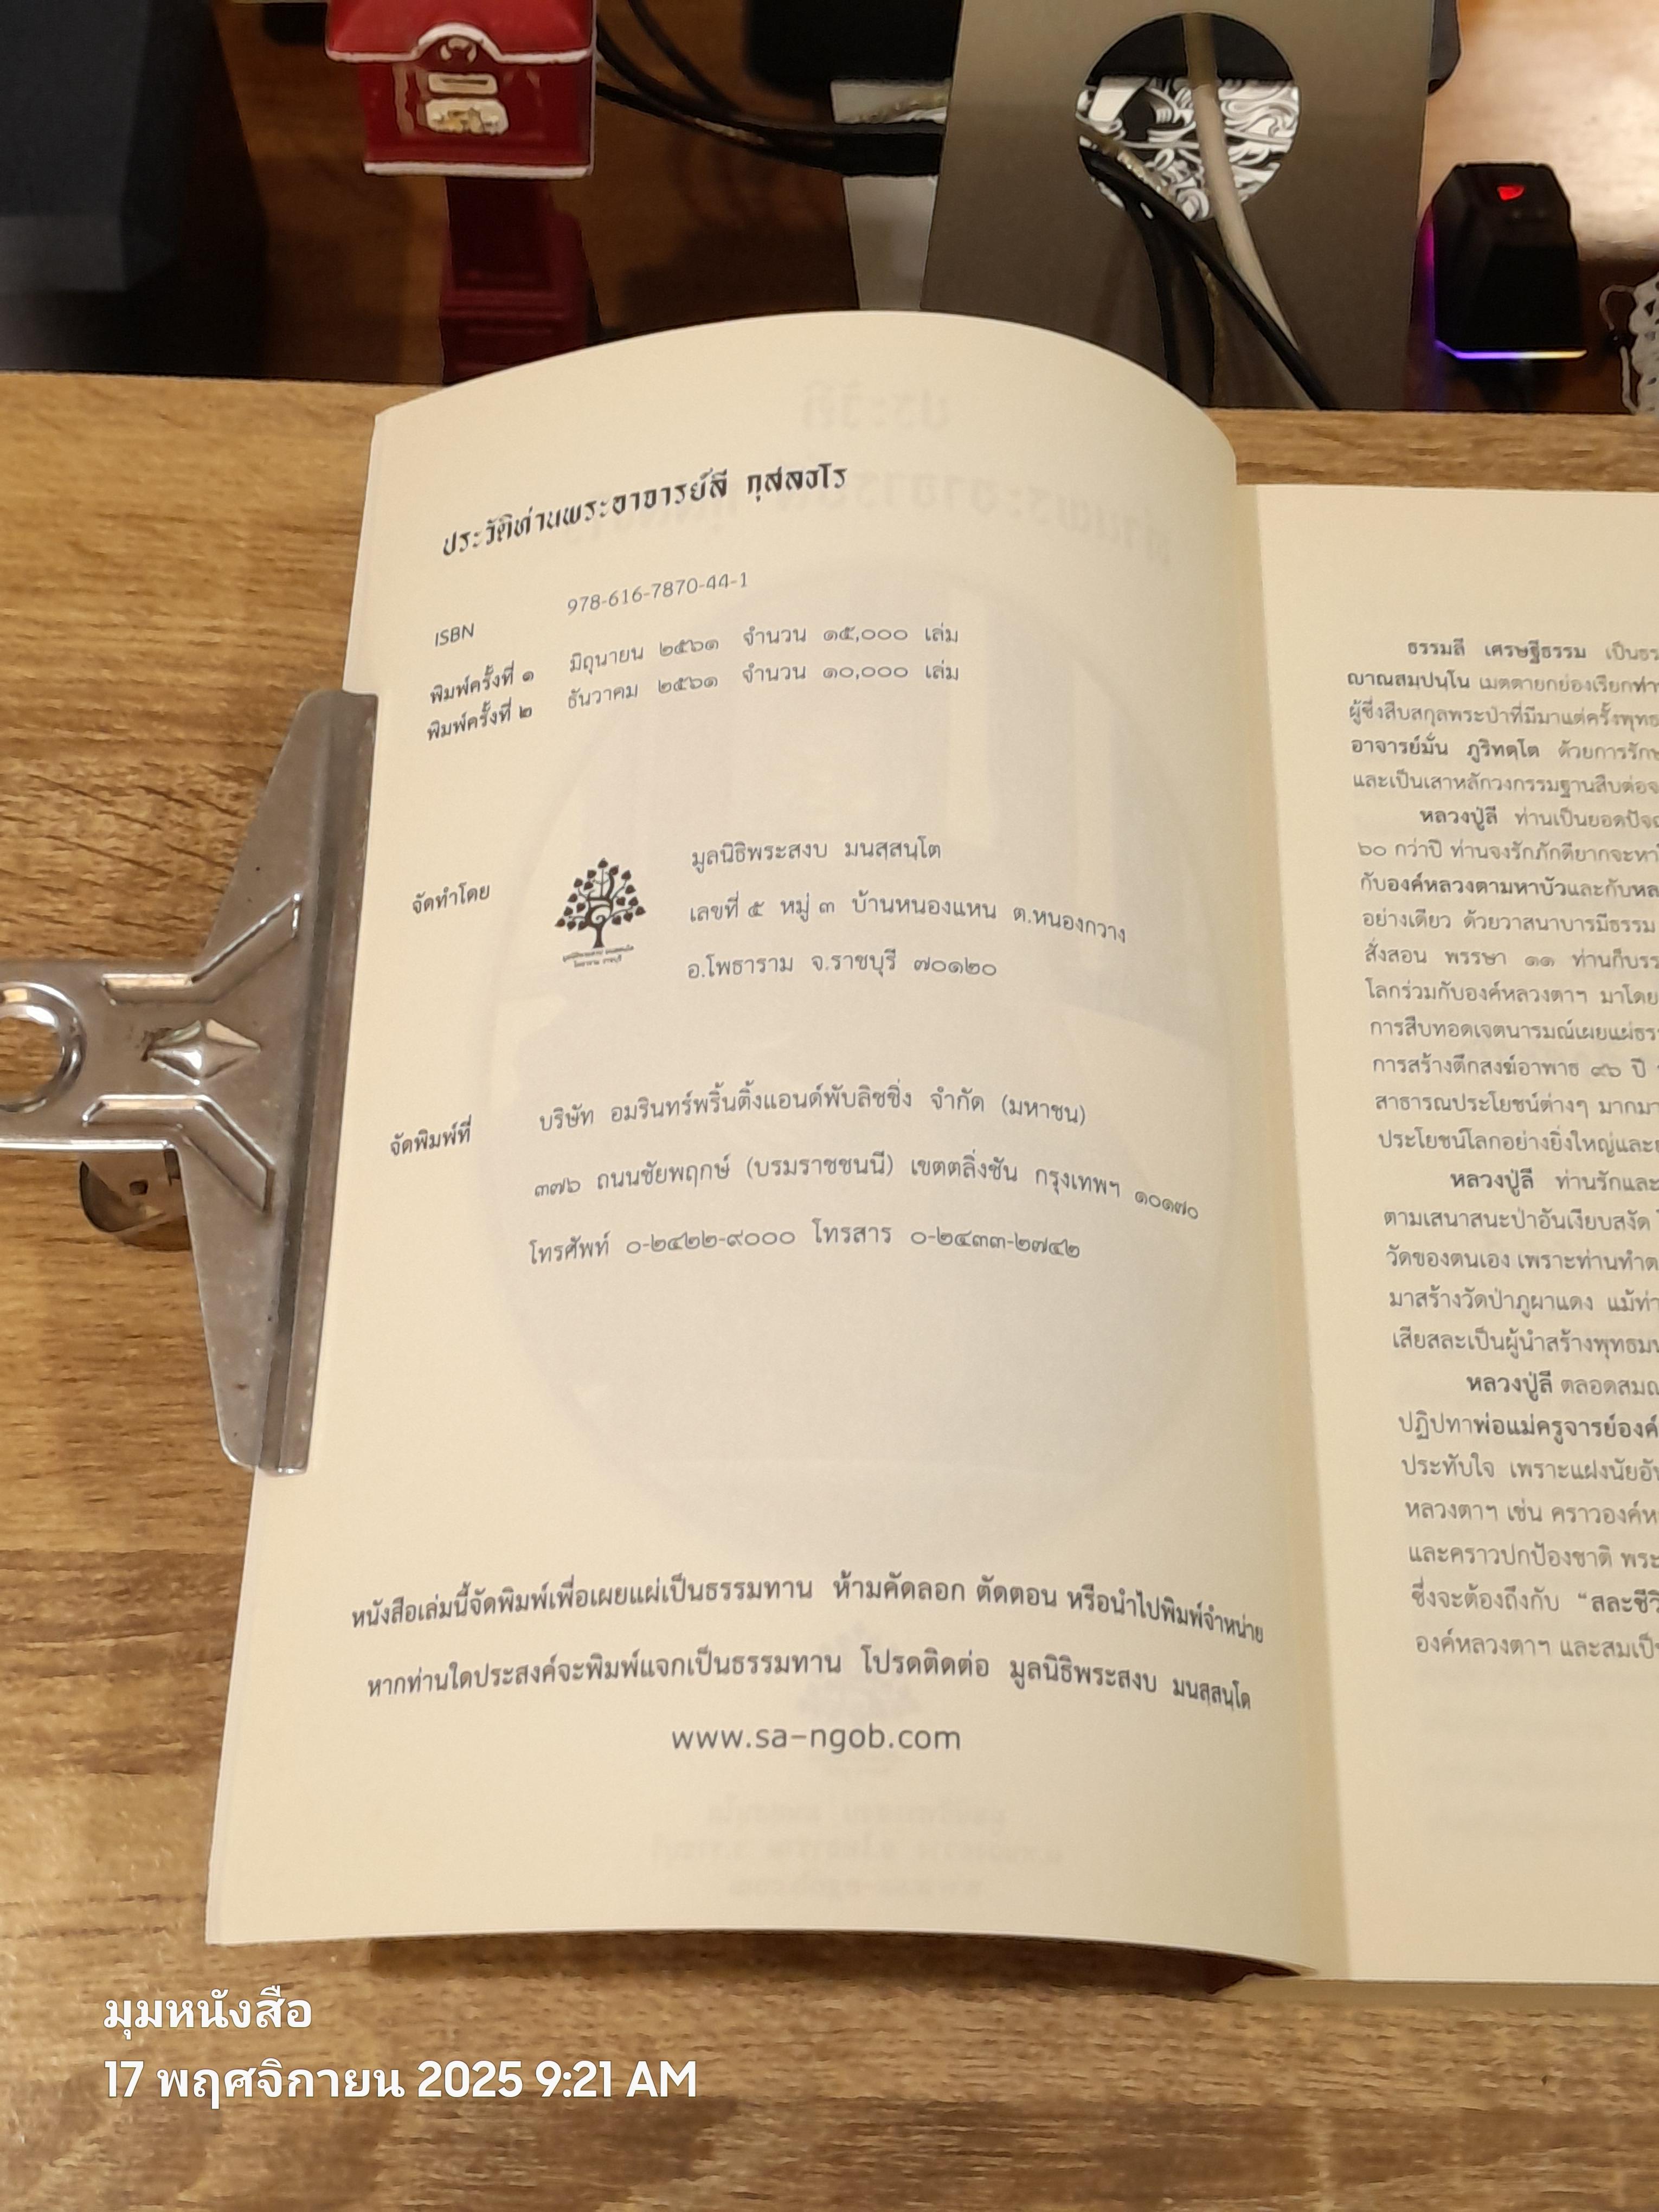 ประวัติท่านพระอาจารย์ลี กุสลธโร
ISBN 978-616-7870-44-1
พิมพ์ครั้งที่ ๑ มิถุนายน ๒๕๖๑ จำนวน ๑๕,๐๐๐ เล่ม
พิมพ์ครั้งที่ ๒ ธันวาคม ๒๕๖๑ จำนวน ๑๐,๐๐๐ เล่ม
จัดทำโดย มูลนิธิพระสงบ มนสฺสนฺโต
เลขที่ ๕ หมู่ ๓ บ้านหนองแหน ต.หนองกวาง
อ.โพธาราม จ.ราชบุรี ๗๐๑๒๐
จัดพิมพ์ที่ บริษัท อมรินทร์พริ้นติ้งแอนด์พับลิชชิ่ง จำกัด (มหาชน)
๓๗๖ ถนนชัยพฤกษ์ (บรมราชชนนี) เขตตลิ่งชัน กรุงเทพฯ ๑๐๑๗๐
โทรศัพท์ ๐-๒๔๒๒-๙๐๐๐ โทรสาร ๐-๒๔๓๓-๒๗๔๒
หนังสือเล่มนี้จัดพิมพ์เพื่อเผยแผ่เป็นธรรมทาน ห้ามคัดลอก ตัดตอน หรือนำไปพิมพ์จำหน่าย
หากท่านใดประสงค์จะพิมพ์แจกเป็นธรรมทาน โปรดติดต่อ มูลนิธิพระสงบ มนสฺสนฺโต
www.sa-ngob.com
ธรรมลี เศรษฐีธรรม
ญาณสมฺปนฺโน เมตตายกย่องเรียกท่า
ผู้ซึ่งสืบสกุลพระป่าที่มีมาแต่ครั้งพุทธ
อาจารย์มั่น ภูริทตฺโต ด้วยการรักษ
และเป็นเสาหลักวงกรรมฐานสืบต่อจ
หลวงปู่ลี ท่านเป็นยอดปัจ
๖๐ กว่าปี ท่านจงรักภักดียากจะหา
กับองค์หลวงตามหาบัวและกับหล
อย่างเดียว ด้วยวาสนาบารมีธรรม
สั่งสอน พรรษา ๑๑ ท่านก็บรร
โลกร่วมกับองค์หลวงตาฯ มาโดย
การสืบทอดเจตนารมณ์เผยแผ่ธรร
การสร้างตึกสงฆ์อาพาธ ๙๖ ปี
สาธารณประโยชน์ต่างๆ มากมา
ประโยชน์โลกอย่างยิ่งใหญ่และย
หลวงปู่ลี ท่านรักและ
ตามเสนาสนะป่าอันเงียบสงัด
วัดของตนเอง เพราะท่านทำต
มาสร้างวัดป่าภูผาแดง แม้ท่า
เสียสละเป็นผู้นำสร้างพุทธม
หลวงปู่ลี ตลอดสมณ
ปฏิปทาพ่อแม่ครูจารย์องค์
ประทับใจ เพราะแฝงนัยอัน
หลวงตาฯ เช่น คราวองค์ห
และคราวปกป้องชาติ พระ
ซึ่งจะต้องถึงกับ “สละชีวิ
องค์หลวงตาฯ และสมเป็น
มุมหนังสือ
17 พฤศจิกายน 2025 9:21 AM